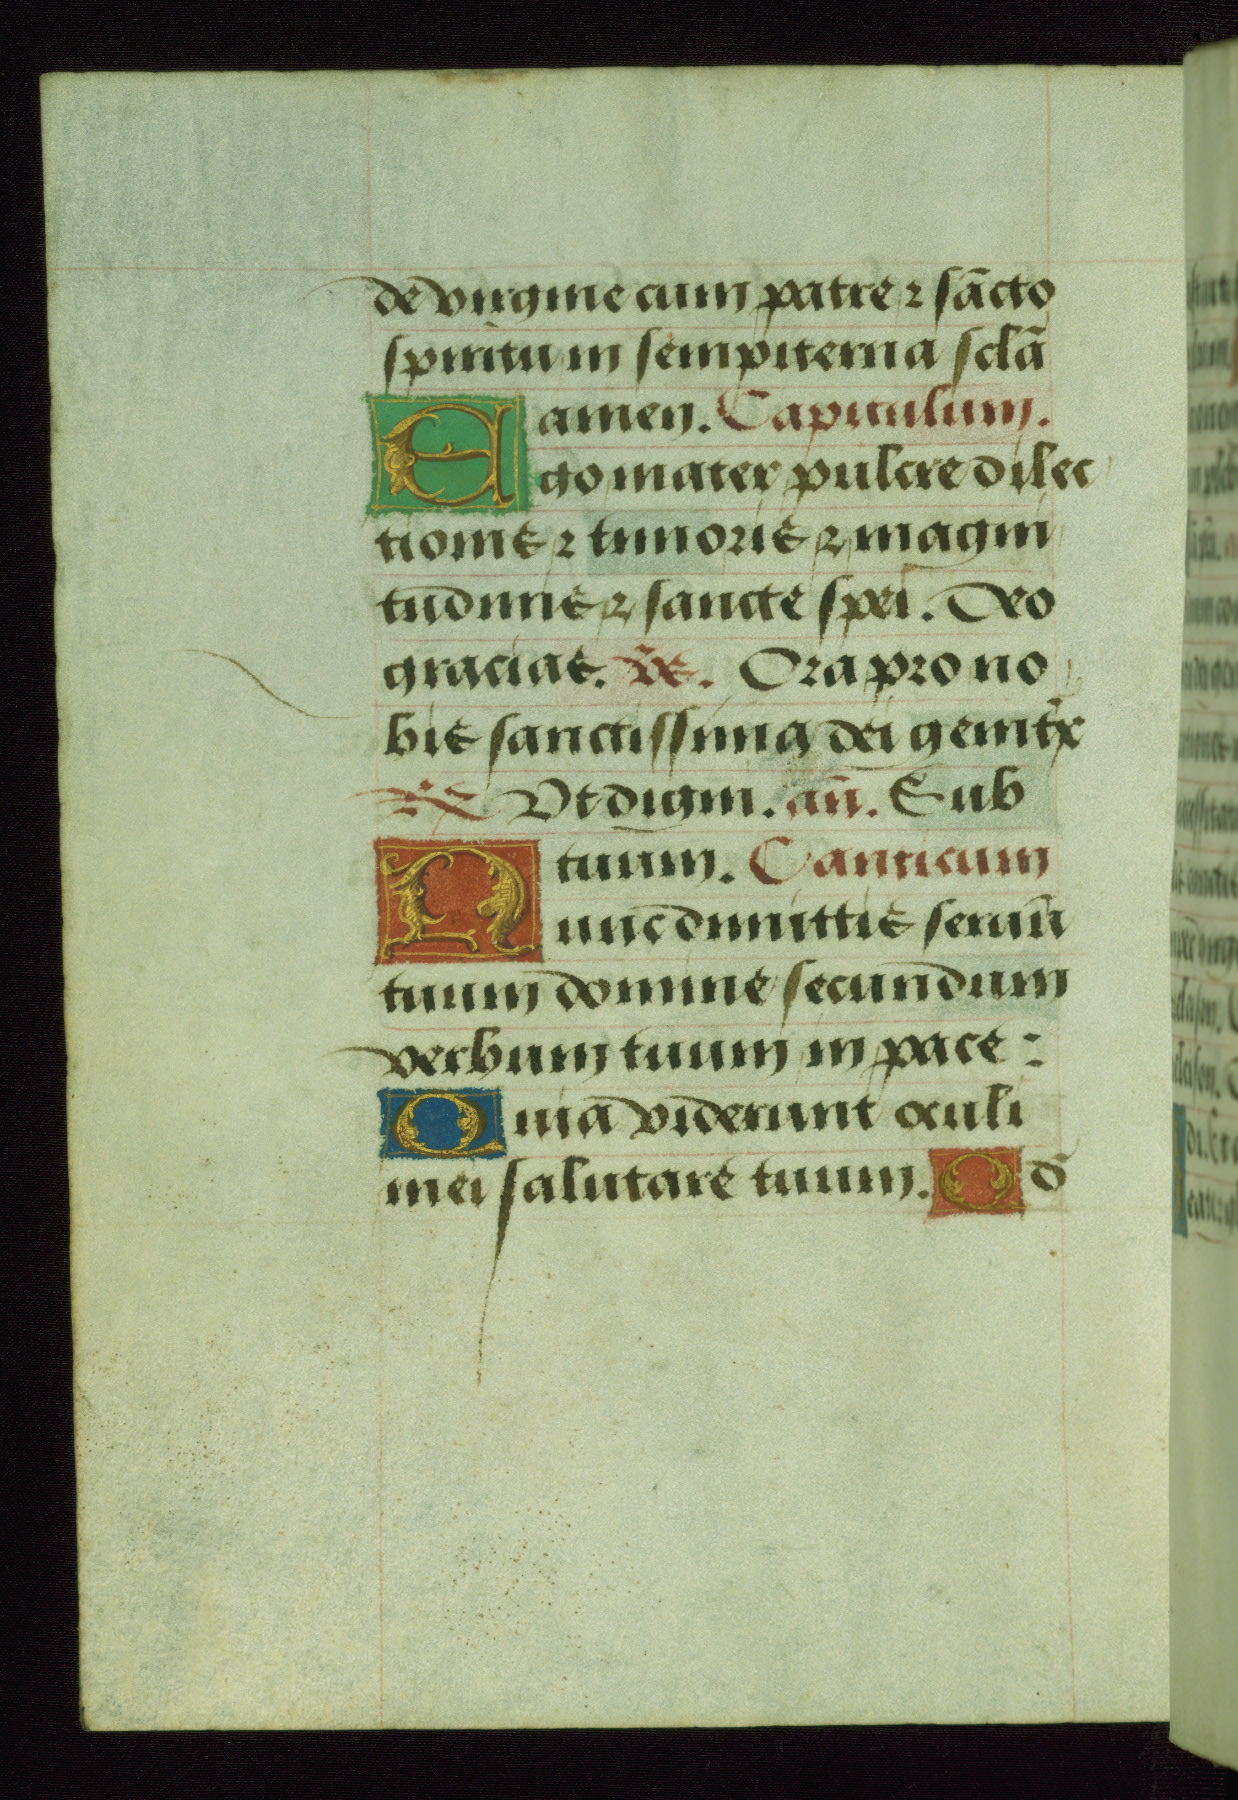 de virgine cum patre ⁊ sācto
spiritu in sempiterna sclā
amen. Capitulum.
Ego mater pulcre dilec
tionis ⁊ timoris ⁊ magni
tudinis ⁊ sancte spei. Deo
gracias. ℣. Ora pro no
bis sanctissima dei genitͥx
℟ Vt digni. añ. Sub
tuum. Canticum
Nunc dimittis seruū
tuum domine secundum
verbum tuum in pace :
Quia viderunt oculi
mei salutare tuum. Qd